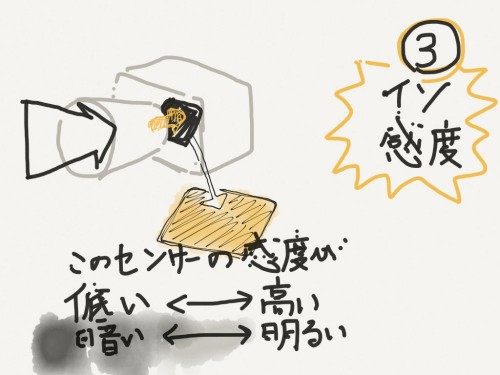 3
イソ
感度
このセンサーの感度が
低い ⟷ 高い
暗い ⟷ 明るい